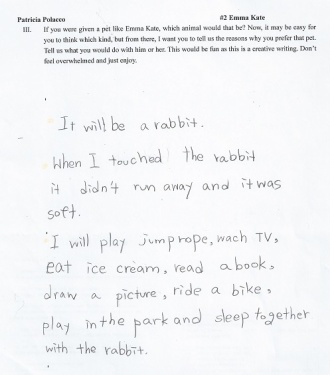 Patricia Polacco #2 Emma Kate
III. If you were given a pet like Emma Kate, which animal would that be? Now, it may be easy for
you to think which kind, but from there, I want you to tell us the reasons why you prefer that pet.
Tell us what you would do with him or her. This would be fun as this is a creative writing. Don't
feel overwhelmed and just enjoy.
It will be a rabbit.
When I touched the rabbit
it didn't run away and it was
soft.
I will play jump rope, wach TV,
eat ice cream, read a book,
draw a picture, ride a bike,
play in the park and sleep together
with the rabbit.